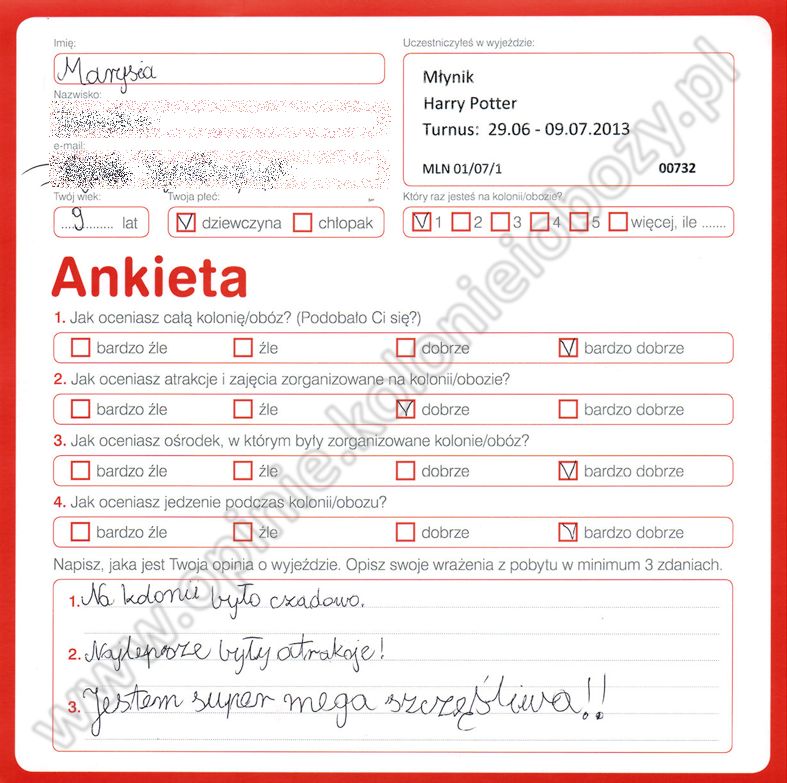 Imię:
Marysia
Nazwisko:
e-mail:
Twój wiek:
9 lat
Twoja płeć:
dziewczyna chłopak
Uczestniczyłeś w wyjeździe:
Młynik
Harry Potter
Turnus: 29.06 - 09.07.2013
MLN 01/07/1 00732
Który raz jesteś na kolonii/obozie?
1 2 3 4 5 więcej, ile .......
Ankieta
1. Jak oceniasz całą kolonię/obóz? (Podobało Ci się?)
bardzo źle źle dobrze bardzo dobrze
2. Jak oceniasz atrakcje i zajęcia zorganizowane na kolonii/obozie?
bardzo źle źle dobrze bardzo dobrze
3. Jak oceniasz ośrodek, w którym były zorganizowane kolonie/obóz?
bardzo źle źle dobrze bardzo dobrze
4. Jak oceniasz jedzenie podczas kolonii/obozu?
bardzo źle źle dobrze bardzo dobrze
Napisz, jaka jest Twoja opinia o wyjeździe. Opisz swoje wrażenia z pobytu w minimum 3 zdaniach.
1. Na kolonii było czadowo.
2. Najlepsze były atrakcje!
3. Jestem super mega szczęśliwa!!
www.opinie.kolonieiobozy.pl